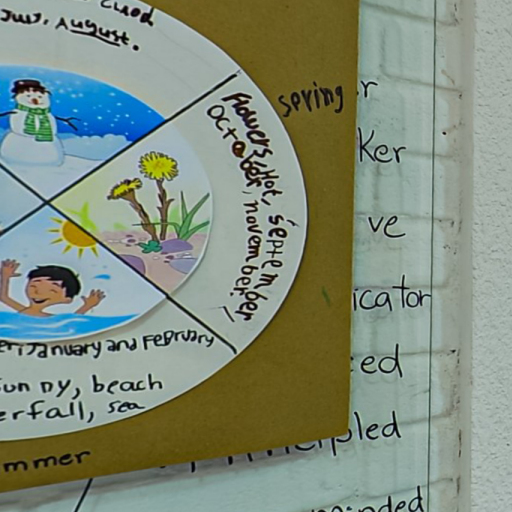 July, August.
spring
flowers, Hot, september
October, november.
January and February
sunny, beach
sea
ker
ve
icator
ed
pled